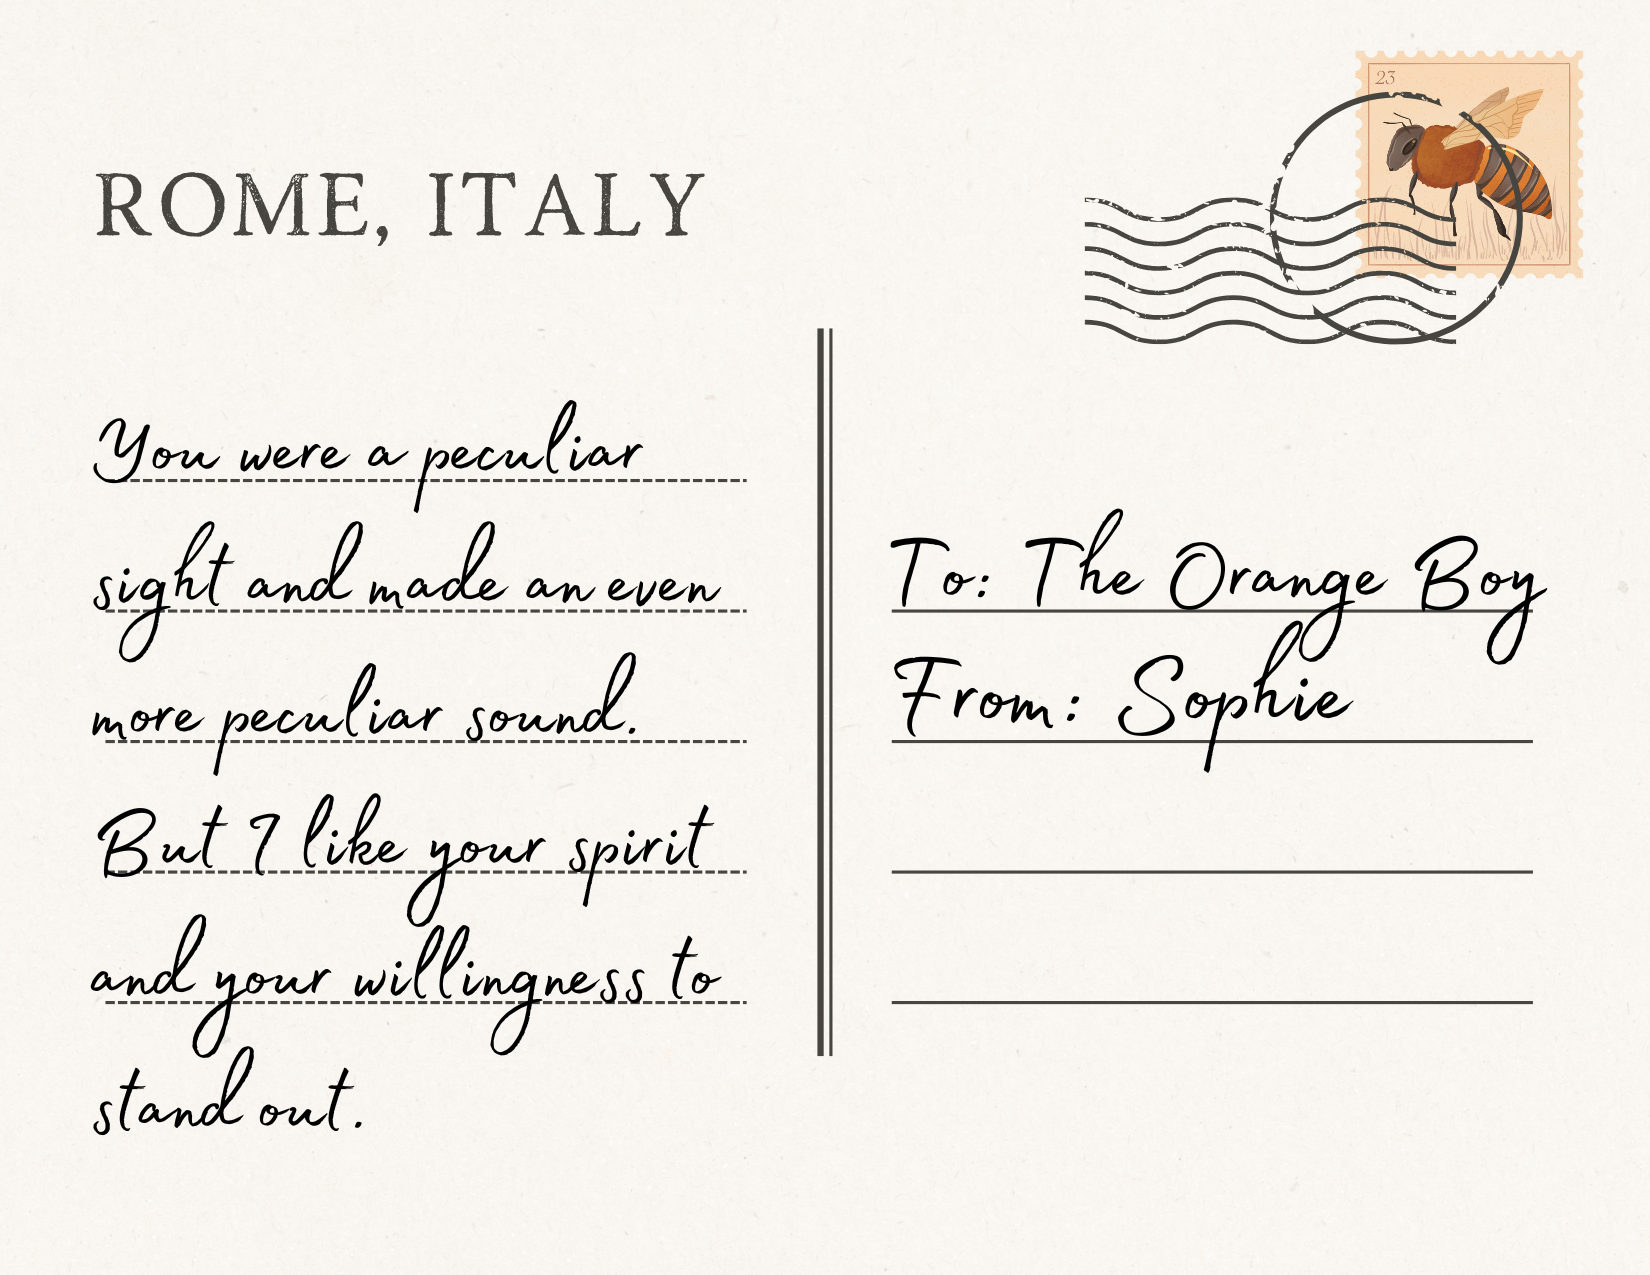 23
ROME, ITALY
You were a peculiar
sight and made an even
more peculiar sound.
But I like your spirit
and your willingness to
stand out.
To: The Orange Boy
From: Sophie